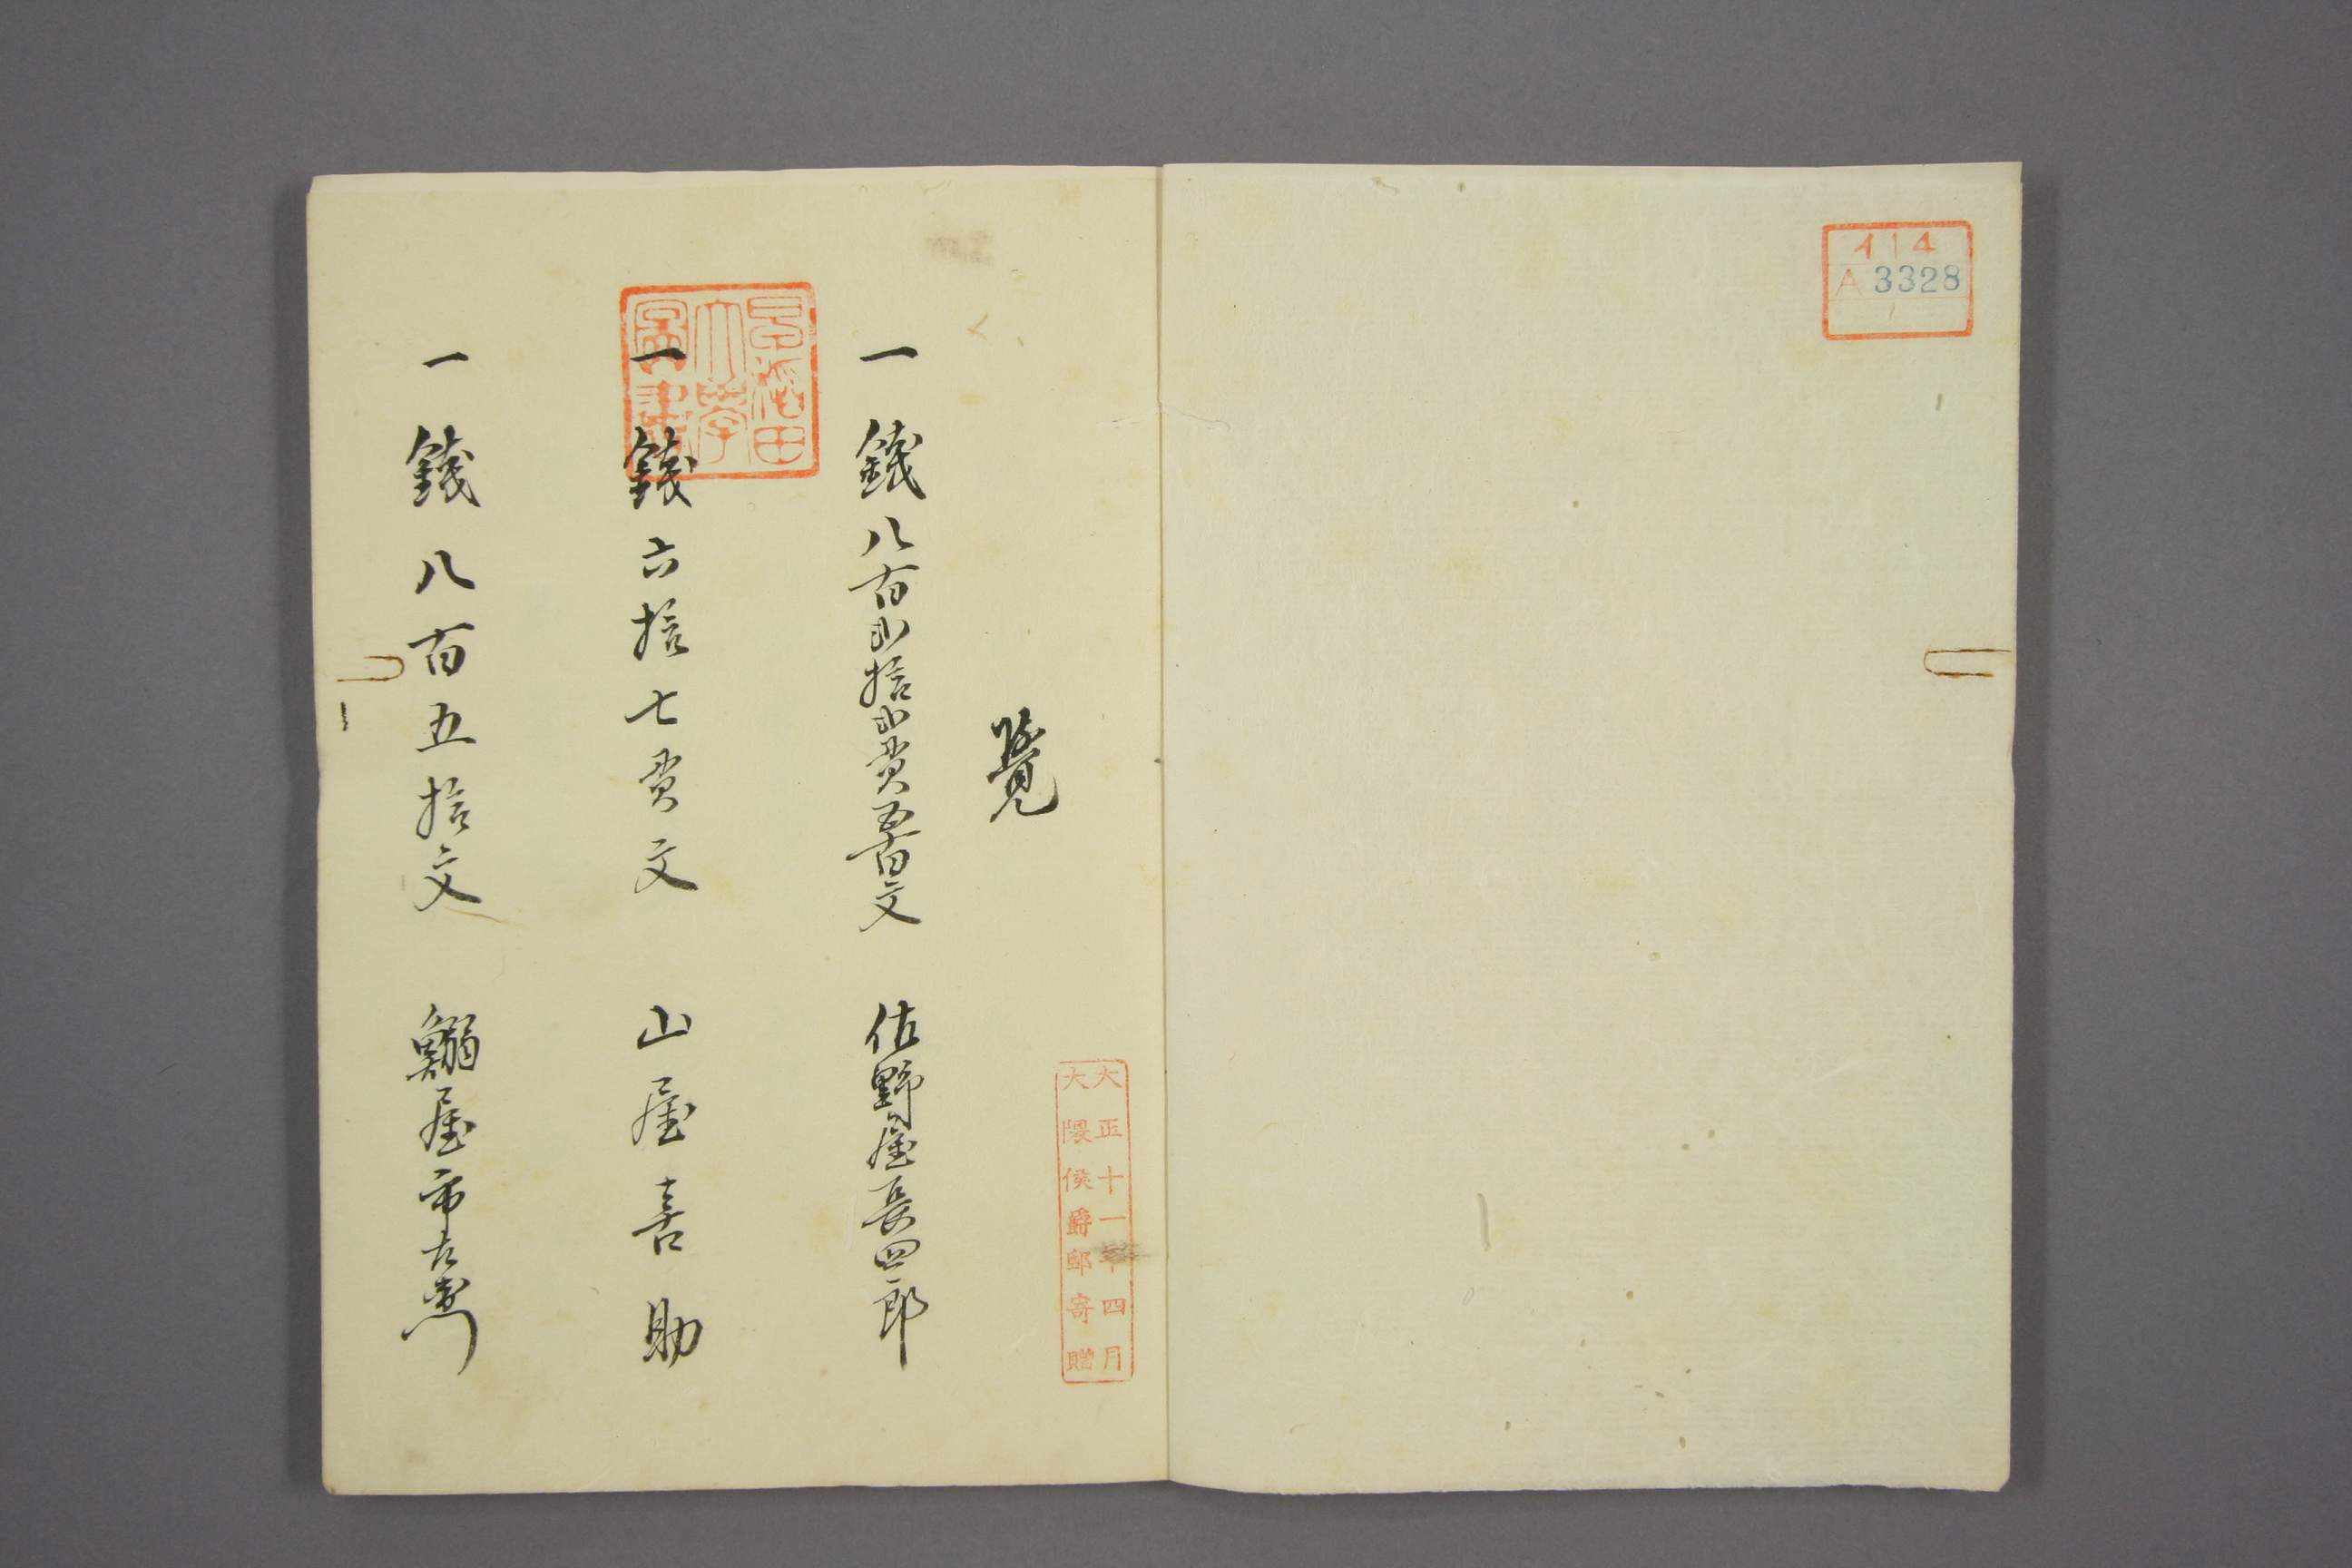 イ14
A 3328
1
大正十一年四月
大隈侯爵邸寄贈
覺
一 錢八百弐拾弐貫五百文 佐野屋長四郎
早稲田
大學
圖書
一 錢六拾七貫文 山屋喜助
一 錢八百五拾文 鰯屋市左衛門